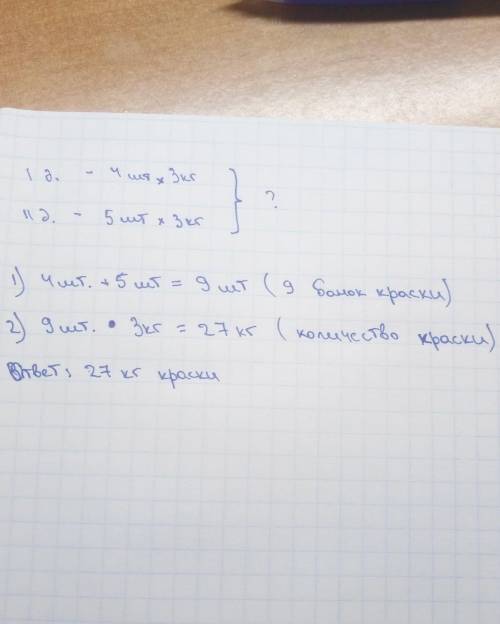 I д. - 4 шт x 3кг } ?
II д. - 5 шт x 3кг
1) 4 шт. + 5 шт = 9 шт ( 9 банок краски)
2) 9 шт. • 3кг = 27 кг ( количество краски)
Ответ: 27 кг краски